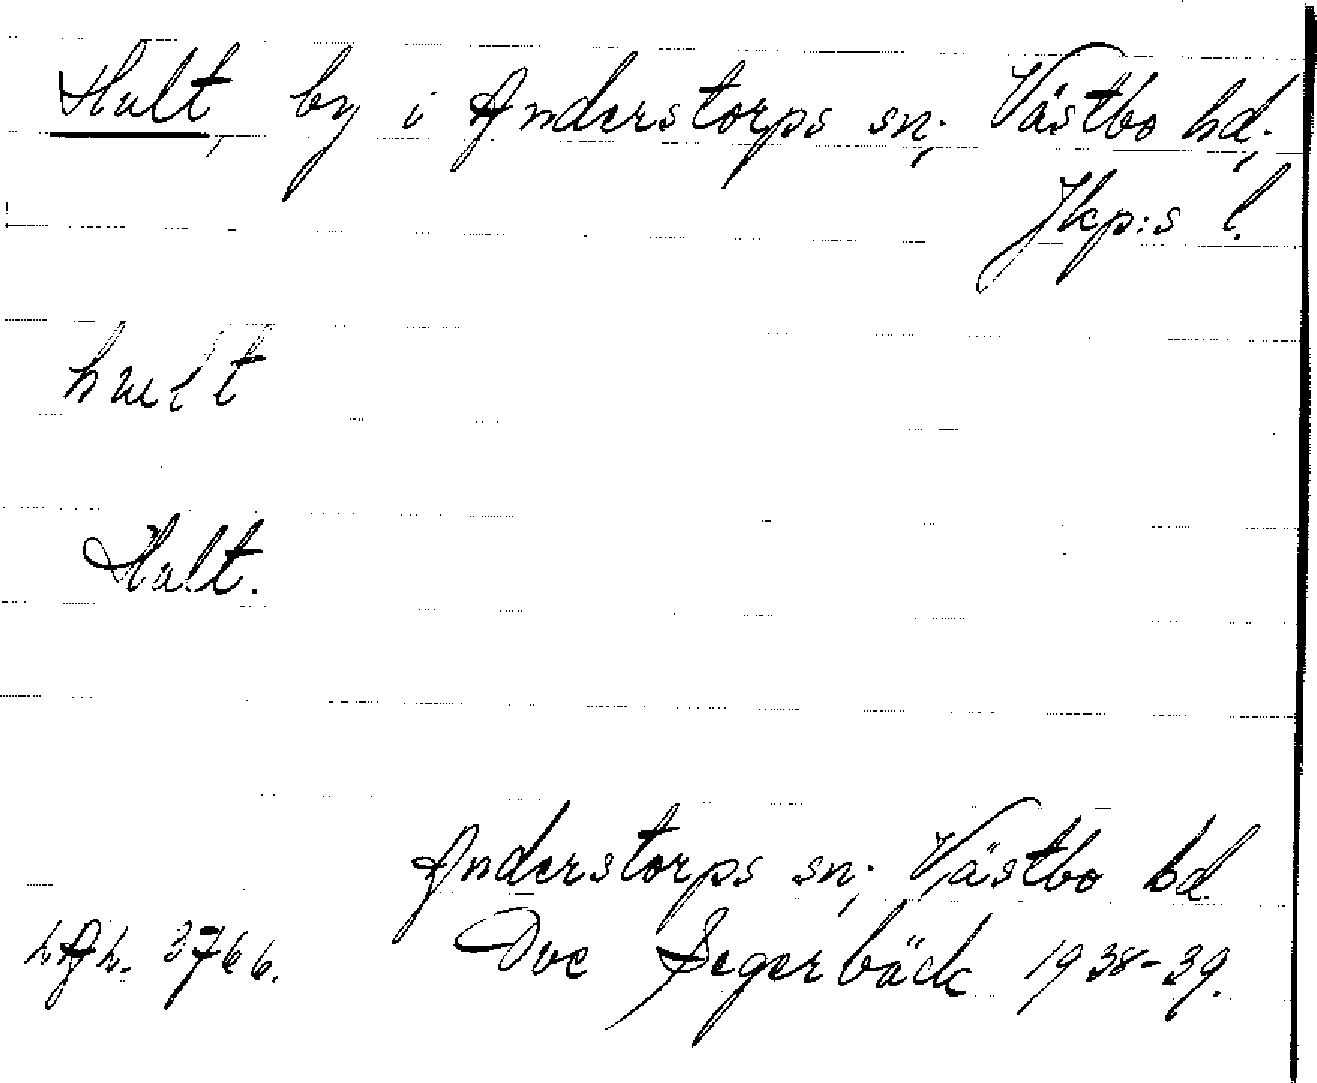 Hult, by i Anderstorps sn., Västbo hd.,
Jkp:s l.
hult
Hult.
Anderstorps sn., Västbo hd.
3766. Ove Segerbäck 1938-39.